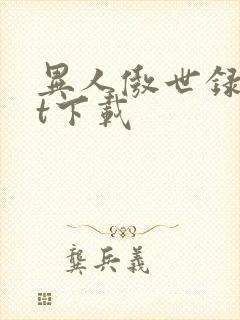 異人傲世録
t下載
龔兵義